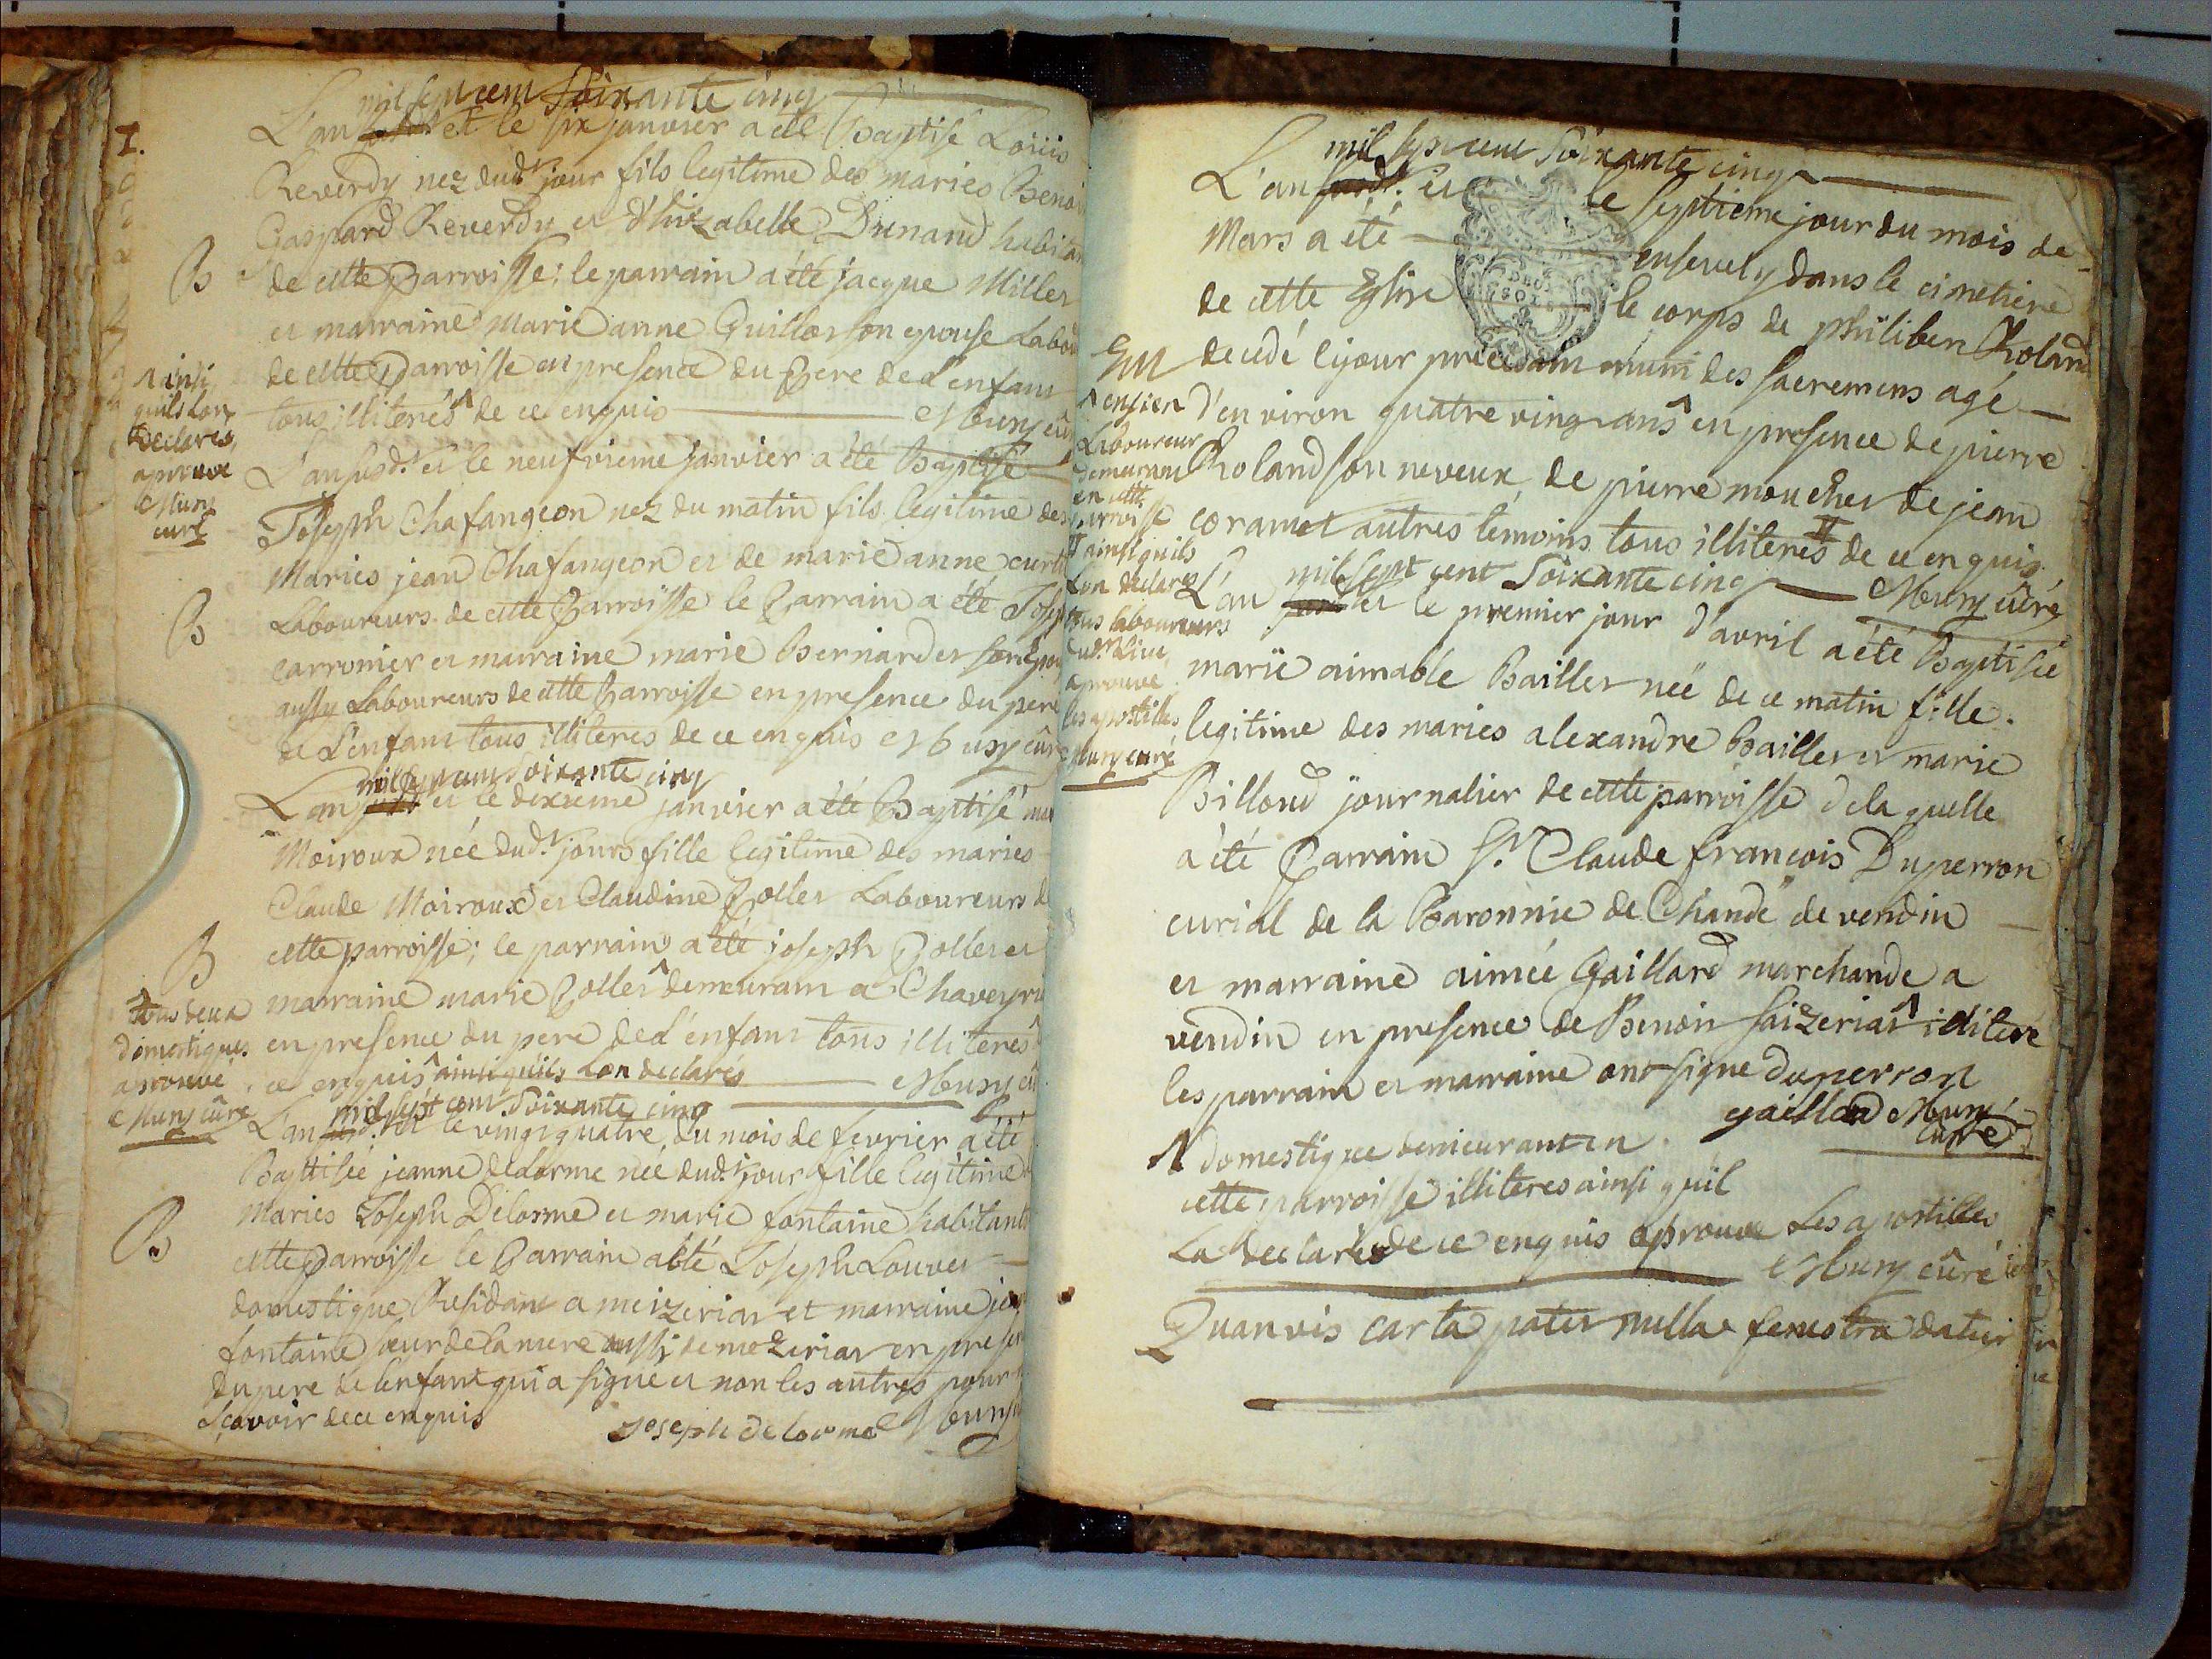 mil sept cent soixante cinq
L'an susdt et le six janvier a été Baptisé Loüis
Reverdy nez dudt jour fils legitime des maries Benoi
Gaspard Reverdy et d'hizabelle Dunand habitan
B
de cette Parroisse; le parrain a été jacque Miller
et marraine marie anne Guillot son epouse Labou
de cette Parroisse en presence du Pere de L'enfant
tous illiterés de ce enquis Mury cûr
ainsi
quils lon
declarés
aprouve
Mury
curé
L'an susdt et le neufvieme janvier a été Baptisé
Joseph Chafangeon nez du matin fils legitime des
Maries jean Chafangeon et de marie anne curti
B
Laboureurs de cette Parroisse le Parrain a été Josep
carronier et marraine marie Bernard et son Epou
aussy Laboureurs de cette Parroisse en presence du pere
de L'enfant tous illiteres de ce enquis Mury cûr
mil sept cent soixante cinq
L'an susdt et le dixieme janvier a été Baptisé
Moiroux née dudt jours fille legitime des maries
Claude Moiroux et Claudine Pollet Laboureurs d
B
cette parroisse; le parrain a été joseph Pollet et
marraine marie Pollet demeurant a Chaveyri
en presence du pere de L'enfant tous illiterés
ce enquis ainsi quils Lon declarés Mury cû
tous deux
domestiques
aprouvé
Mury cûre
mil sept cent soixante cinq
L'an susdt et le vingt quatre du mois de fevrier a été
Baptisée jeanne delorme née dudt jour fille legitime
B
Maries Joseph Delorme et marie fontaine habitants
cette Parroisse le Parrain a été Joseph Louvet
domestique Residant a meizeriat et marraine jea
fontaine soeur de la mere aussi de mezeriat en presen
du pere de lenfant qui a signé et non les autres pour
sçavoir de ce enquis
Joseph delorme Mury
mil sept cent soixante cinq
L'an susdt et le septieme jour du mois de
Mars a été ensevely dans le cimetiere
de cette Eglise le corps de philibert Roland
decedé le jour precedant muni des sacremens agé
d'environ quatre vingt ans en presence de pierre
Roland son neveux, de pierre moucher de jean
coram et autres témoins tous illiterés de ce enquis
Mury cûré
ensien
Laboureur
demeurant
en cette
parroisse
ainsi quils
Lon declarés
tous laboureurs
dudt Lieu
aprouve
les apostilles
Mury curé
mil sept cent soixante cinq
L'an susdt et le premier jour d'avril a été Baptisée
marie aimable Baillet née de ce matin fille
legitime des maries alexandre Baillet et marie
Billoud journalier de cette parroisse de la quelle
a été Parrain Sr Claude francois Duperron
curial de la Baronnie de Chande de vendin
et marraine aimée Gaillard marchande a
vendin en presence de Benoit saizeriat illiteré
les parrain et marraine ont signe Duperron
gaillard Mury
curé
domestique demeurant en
cette parroisse illiteres ainsi quil
La declarés de ce enquis aprouve Les apostilles
Mury cûré
Quanvis carta patet nulla fenestra datur